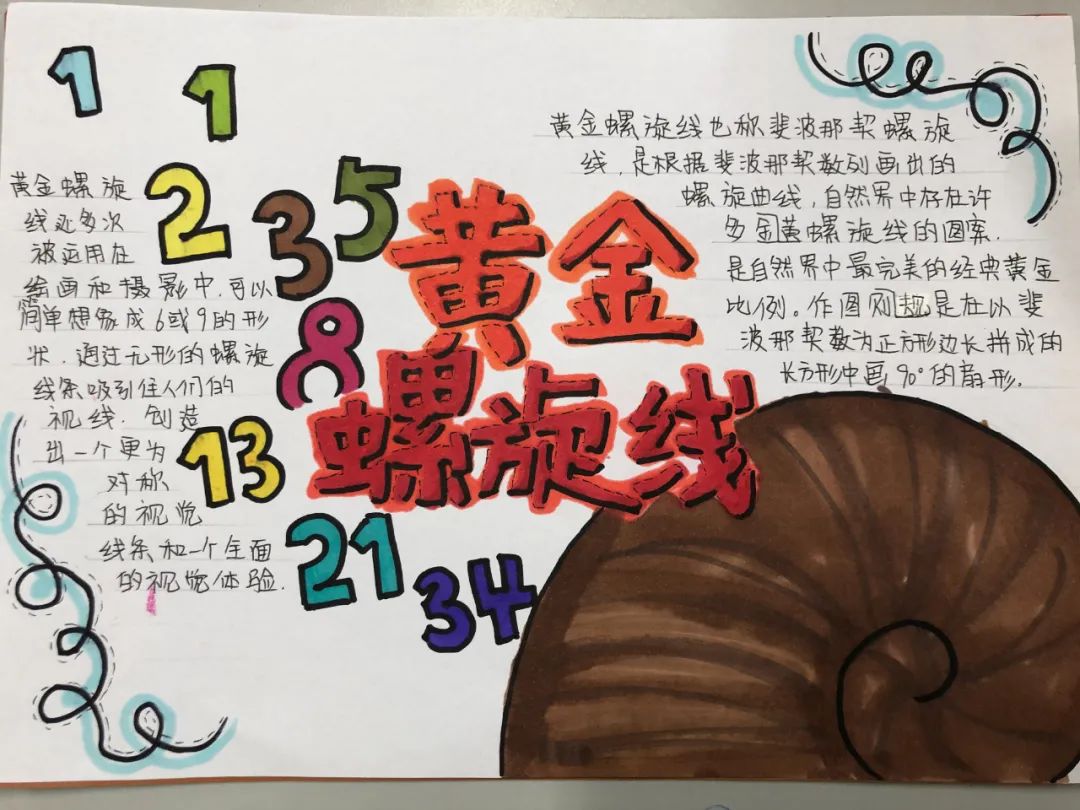 1
1
2
3
5
8
13
21
34
黄金
螺旋线
黄金螺旋
线延多次
被运用在
绘画和摄影中,可以
简单想象成6或9的形
状,通过无形的螺旋
线条吸引住人们的
视线.创造
出一个更为
对称
的视觉
线条和一个全面
的视觉体验.
黄金螺旋线也称斐波那契螺旋
线,是根据斐波那契数列画出的
螺旋曲线,自然界中存在许
多金黄螺旋线的图案.
是自然界中最完美的经典黄金
比例。作图规则是在以斐
波那契数为正方形边长拼成的
长方形中画90°的扇形.